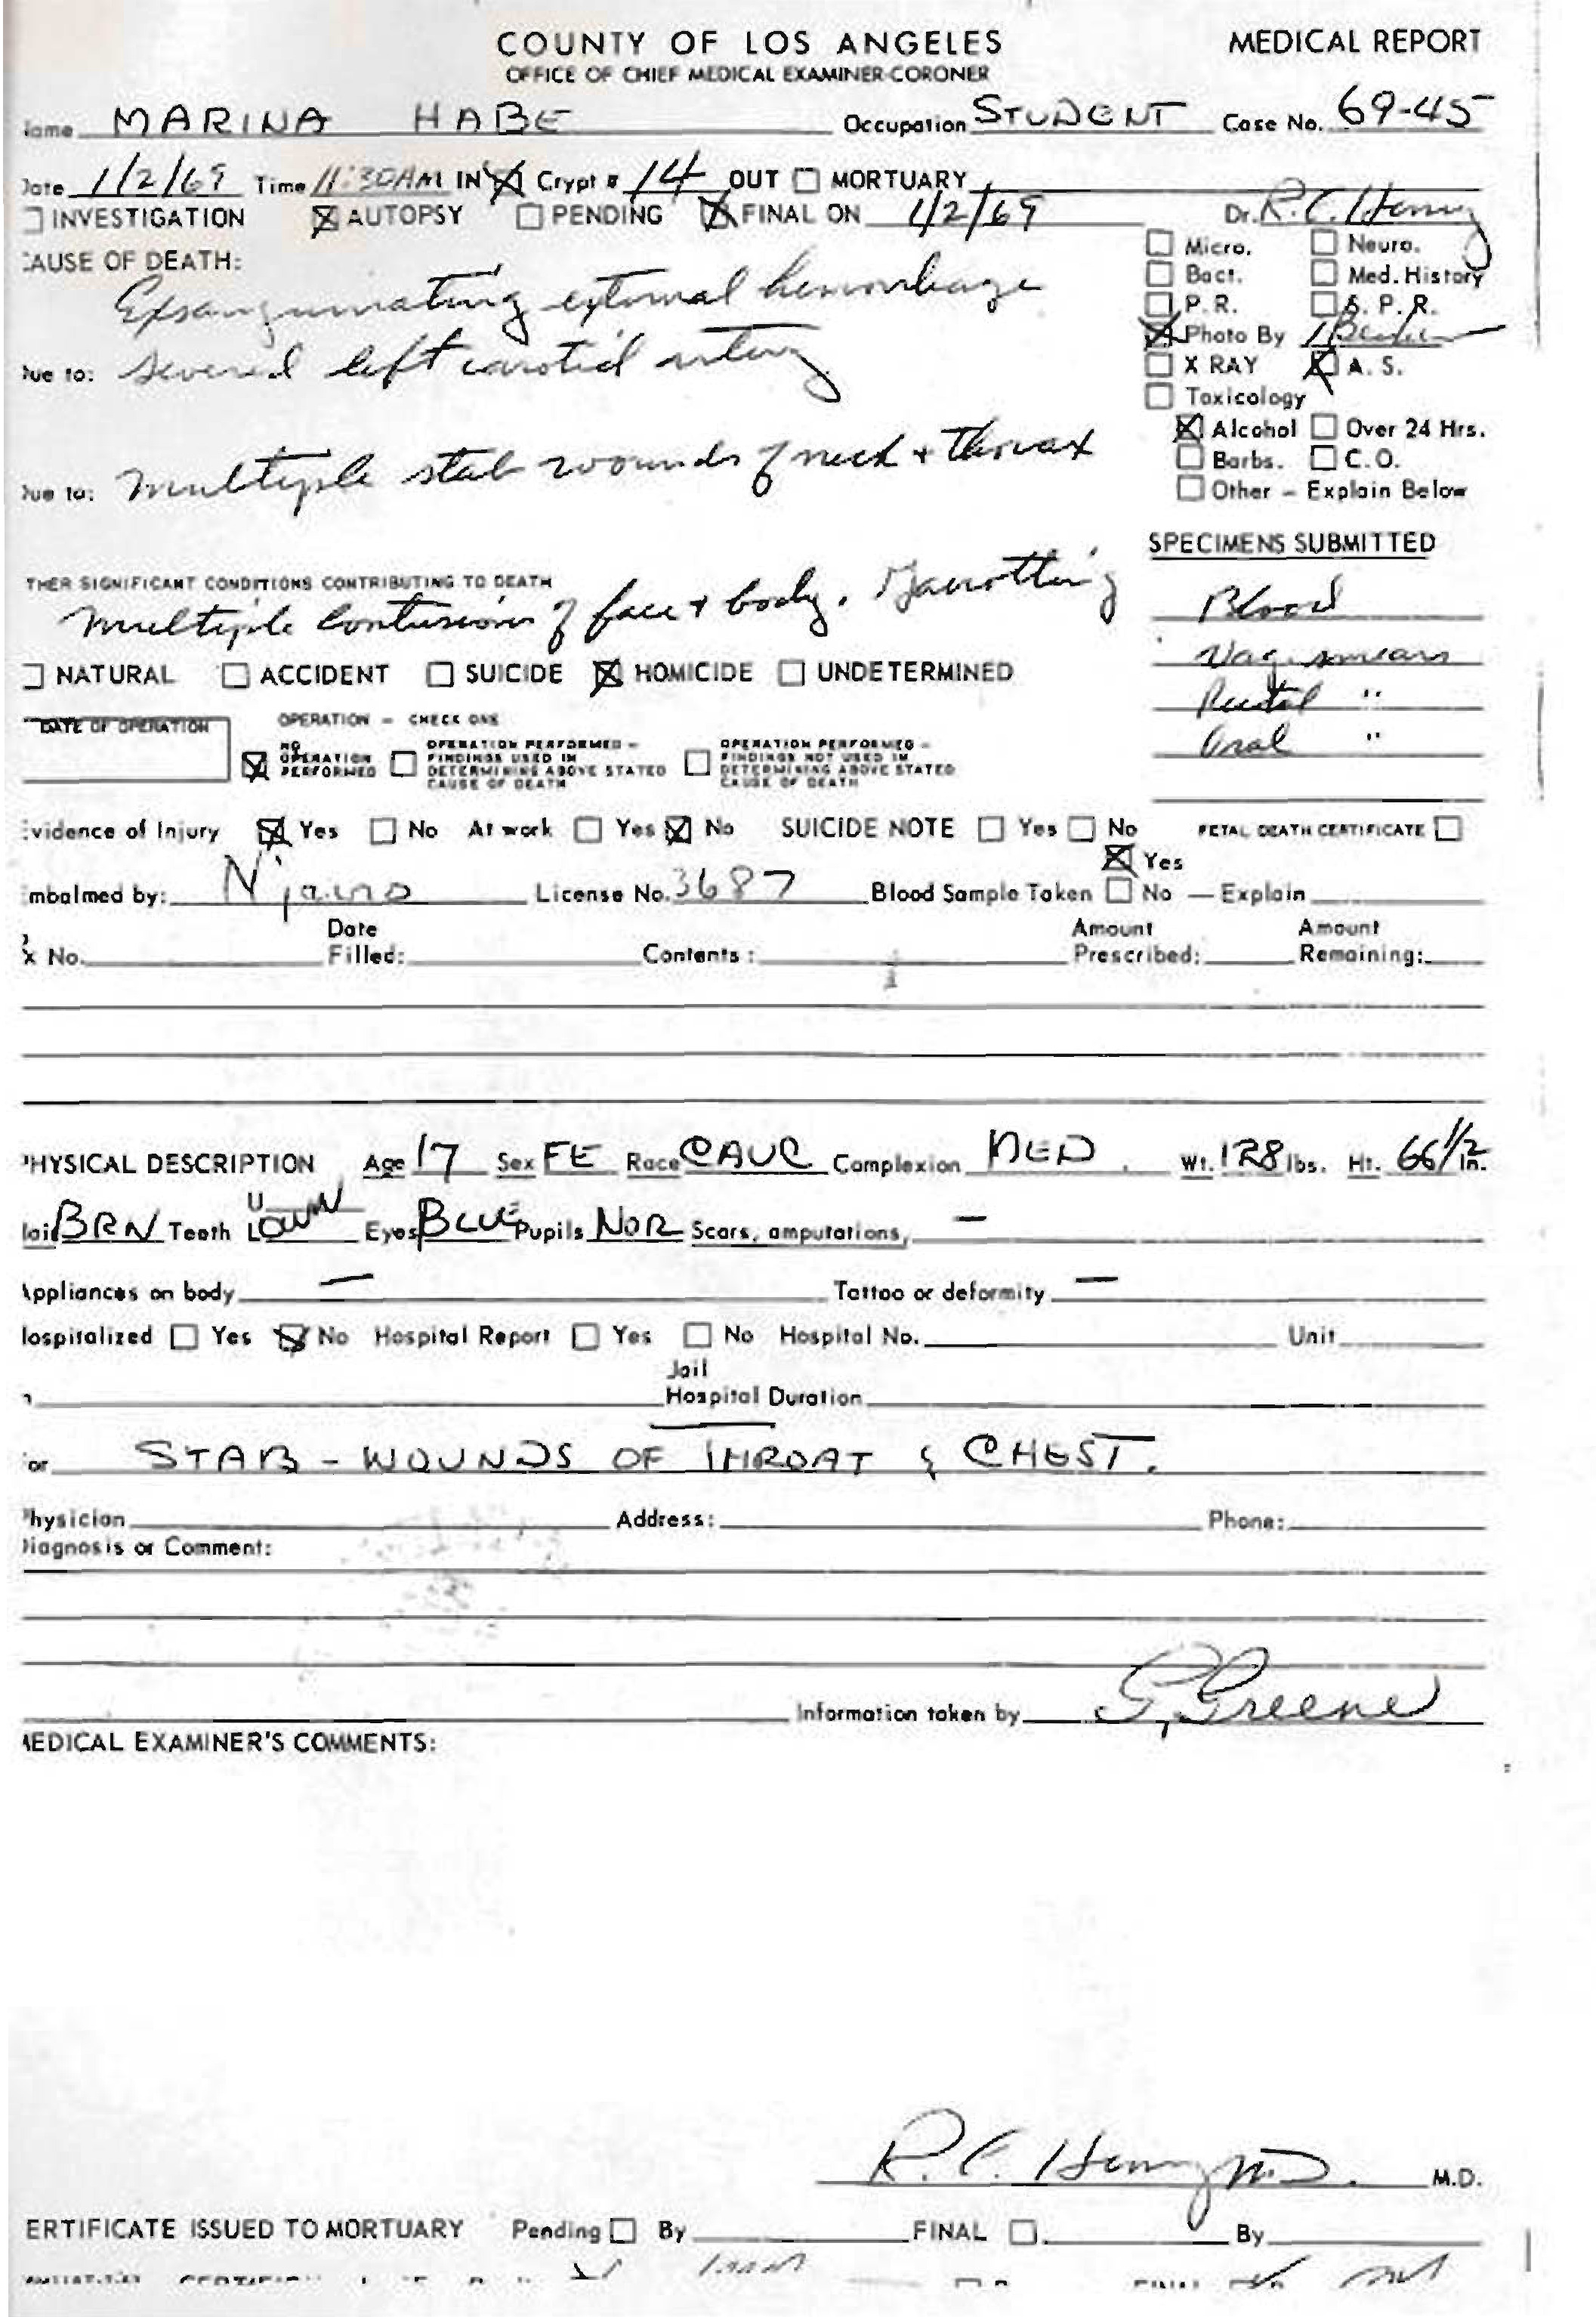 COUNTY OF LOS ANGELES MEDICAL REPORT
OFFICE OF CHIEF MEDICAL EXAMINER-CORONER
ame MARINA HABE Occupation STUDENT Case No. 69-45
Date 1/2/69 Time 11:30AM IN ☒ Crypt # 14 OUT ☐ MORTUARY
☐ INVESTIGATION ☒ AUTOPSY ☐ PENDING ☒ FINAL ON 1/2/69 Dr. R. C. Henry
☐ Micro. ☐ Neuro.
CAUSE OF DEATH: ☐ Bact. ☐ Med. History
Exsanguinating external hemorrhage ☐ P. R. ☐ S. P. R.
☒ Photo By
Due to: severed left carotid artery ☐ X RAY ☒ A. S.
☐ Toxicology
☒ Alcohol ☐ Over 24 Hrs.
Due to: Multiple stab wounds of neck + thorax ☐ Barbs. ☐ C.O.
☐ Other – Explain Below
SPECIMENS SUBMITTED
THER SIGNIFICANT CONDITIONS CONTRIBUTING TO DEATH
Multiple contusions of face + body. Garrotting Blood
Vag. smears
☐ NATURAL ☐ ACCIDENT ☐ SUICIDE ☒ HOMICIDE ☐ UNDETERMINED
Rectal "
DATE OF OPERATION OPERATION – CHECK ONE
Oral "
☒ NO OPERATION PERFORMED ☐ OPERATION PERFORMED – FINDINGS USED IN DETERMINING ABOVE STATED CAUSE OF DEATH ☐ OPERATION PERFORMED – FINDINGS NOT USED IN DETERMINING ABOVE STATED CAUSE OF DEATH
vidence of Injury ☒ Yes ☐ No At work ☐ Yes ☒ No SUICIDE NOTE ☐ Yes ☐ No FETAL DEATH CERTIFICATE ☐
☒ Yes
mbalmed by: License No. 3687 Blood Sample Taken ☐ No — Explain
Date Amount Amount
x No. Filled: Contents: Prescribed: Remaining:
PHYSICAL DESCRIPTION Age 17 Sex FE Race CAUC Complexion MED. Wt. 128 lbs. Ht. 66 1/2 in.
Hair BRN Teeth U L OWN Eyes BLUE Pupils NOR Scars, amputations, –
Appliances on body – Tattoo or deformity –
Hospitalized ☐ Yes ☒ No Hospital Report ☐ Yes ☐ No Hospital No. Unit
Jail
Hospital Duration
or STAB - WOUNDS OF THROAT & CHEST.
Physician Address: Phone:
Diagnosis or Comment:
Information taken by G, Greene
MEDICAL EXAMINER'S COMMENTS:
R. C. Henry M.D. M.D.
ERTIFICATE ISSUED TO MORTUARY Pending ☐ By FINAL ☐ By